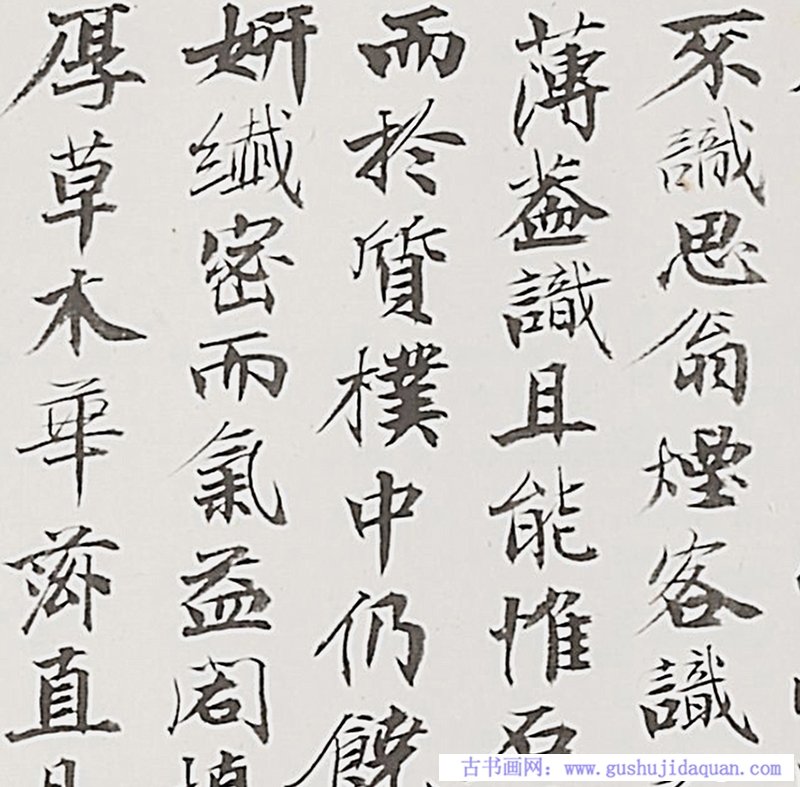 不識思翁煙客識
薄葢識且能惟
而於質樸中仍饒
妍纖密而氣益闊
厚草木華滋直
古书画网：www.gushujidaquan.com